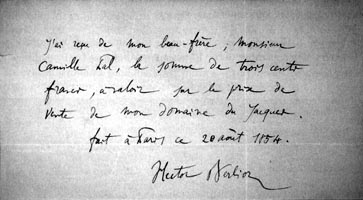 J'ai reçu de mon beau-frère, monsieur
Camille Pal, la somme de trois cents
francs, à valoir sur le prix de
vente de mon domaine du Jacquet.
fait à Paris ce 20 août 1854.
Hector Berlioz